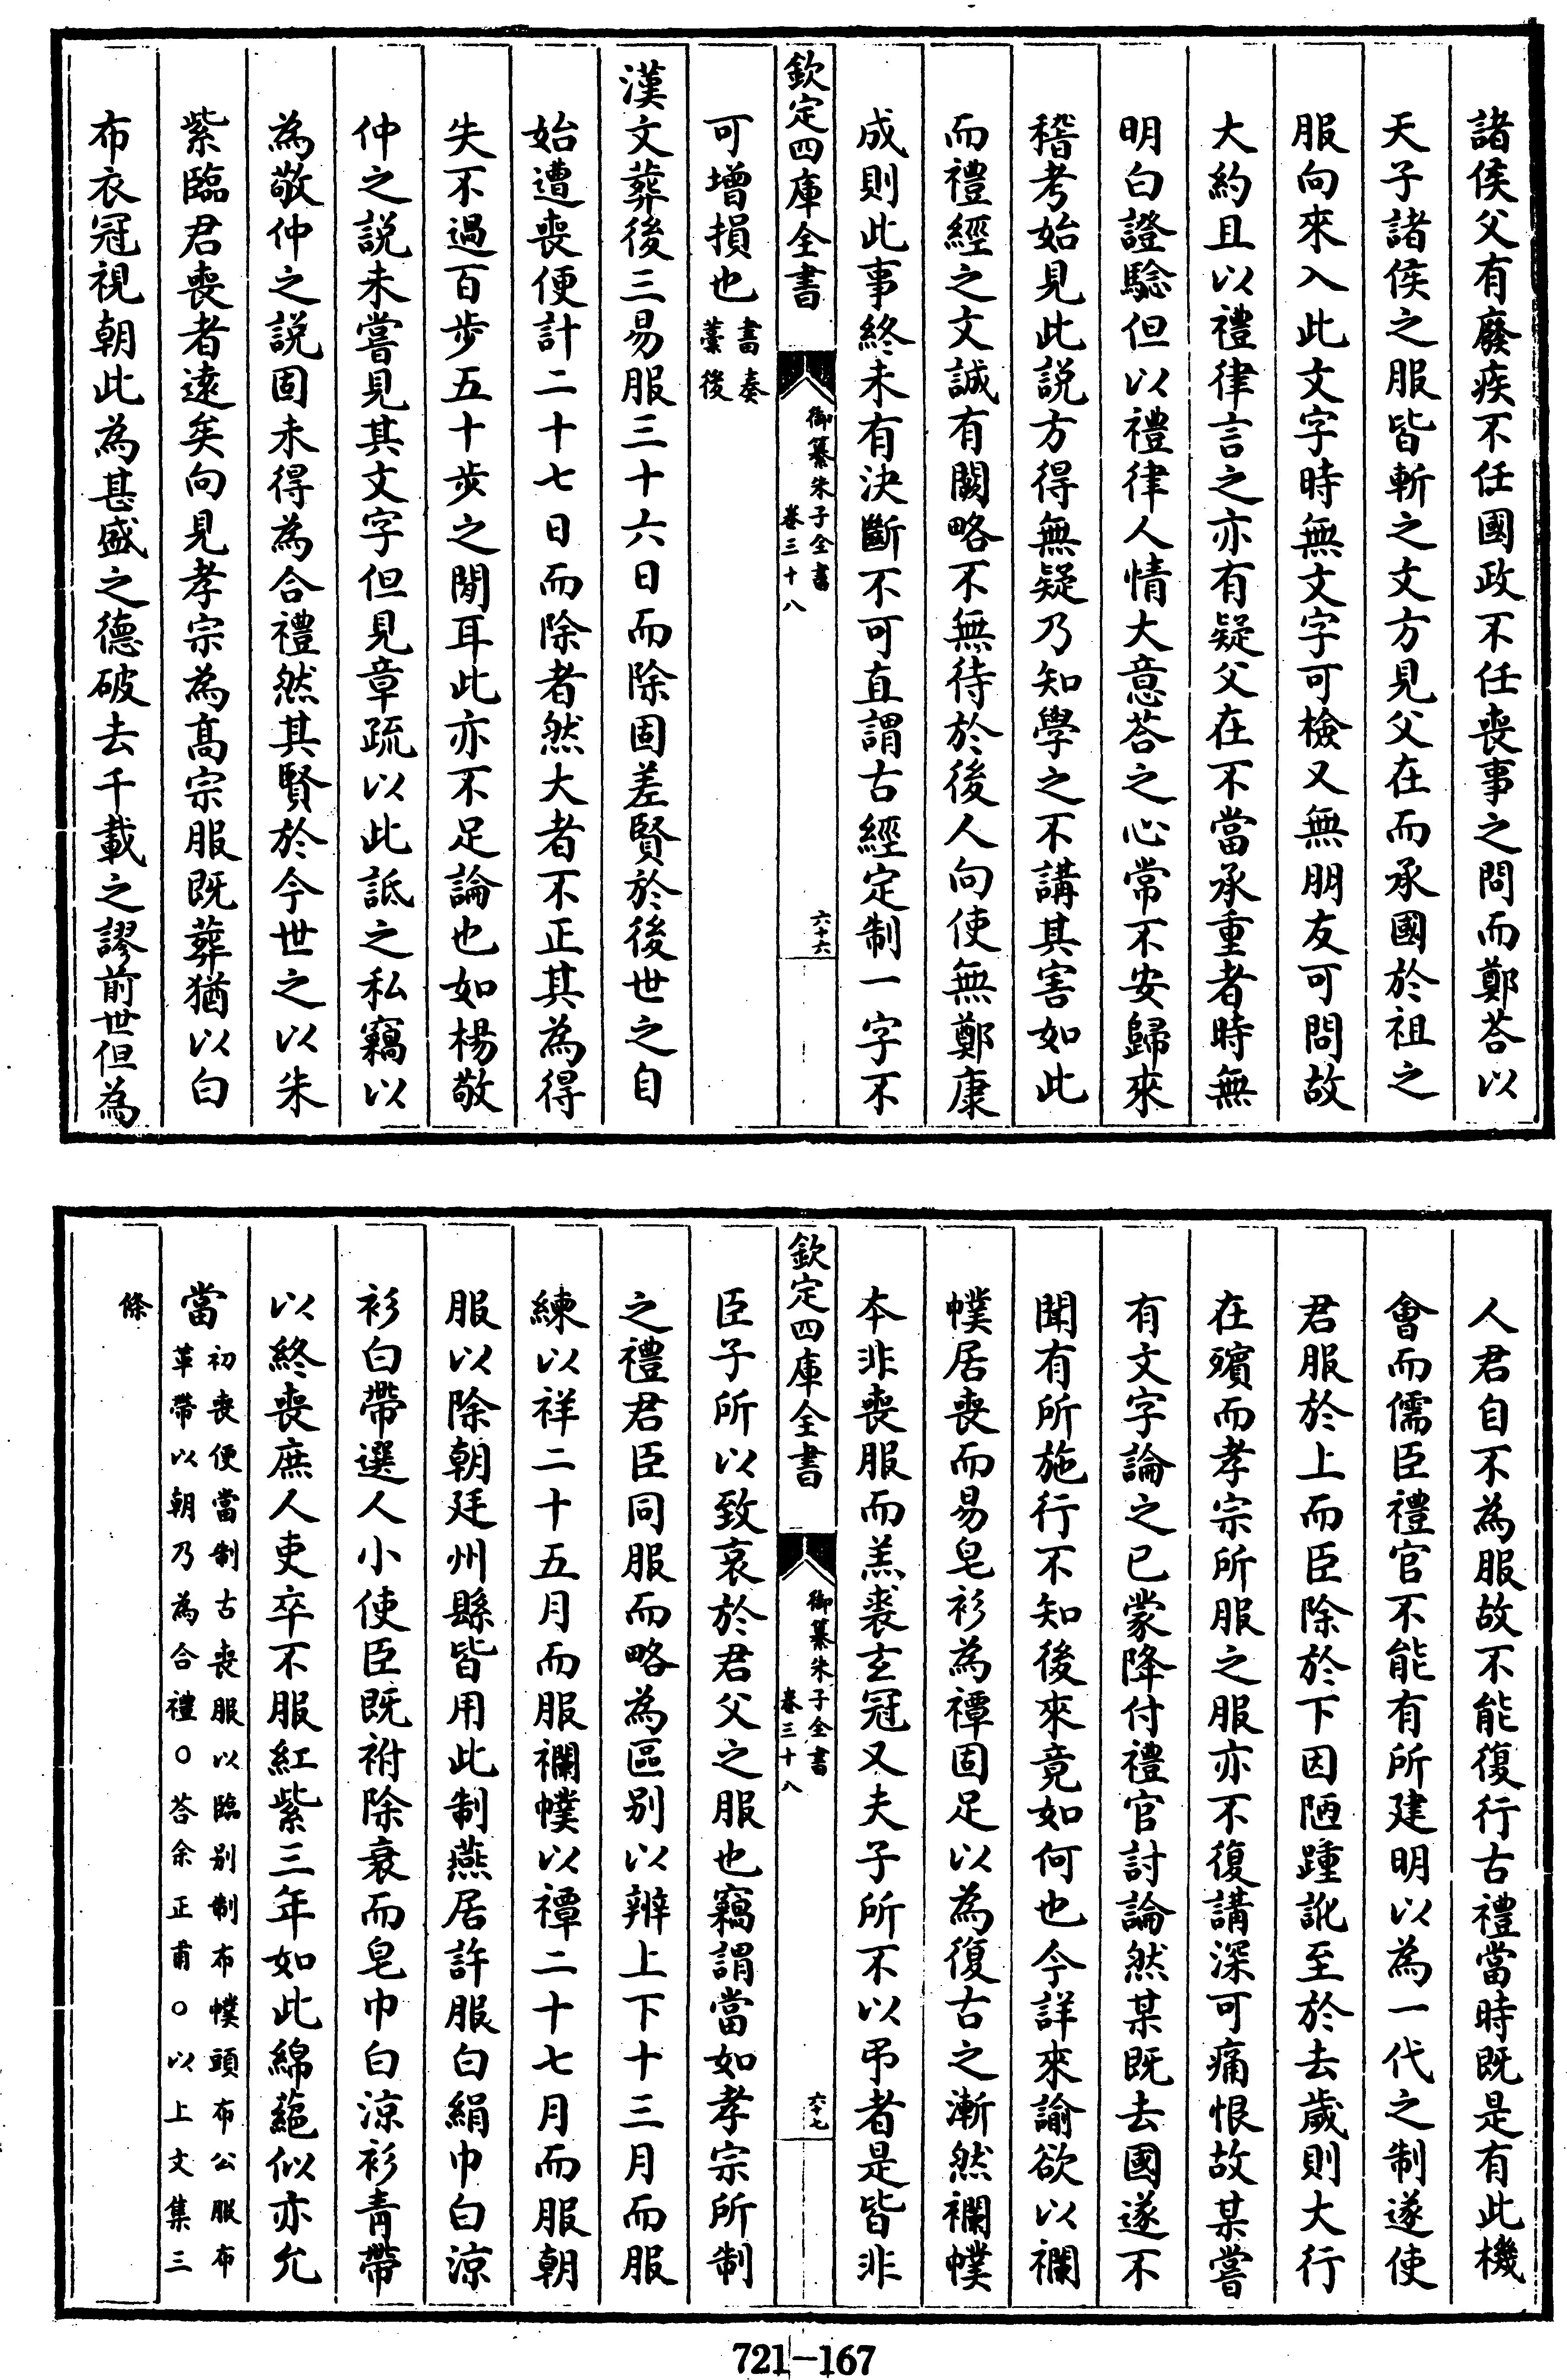 諸侯父有廢疾不任國政不任喪事之問而鄭荅以
天子諸侯之服皆斬之文方見父在而承國於祖之
服向來入此文字時無文字可檢又無朋友可問故
大約且以禮律言之亦有疑父在不當承重者時無
明白證驗但以禮律人情大意荅之心常不安歸來
稽考始見此說方得無疑乃知學之不講其害如此
而禮經之文誠有闕略不無待於後人向使無鄭康
成則此事終未有決斷不可直謂古經定制一字不
欽定四庫全書
御纂朱子全書
卷三十八
六十六
可增損也書奏藁後
漢文葬後三易服三十六日而除固差賢於後世之自
始遭喪便計二十七日而除者然大者不正其為得
失不過百步五十步之間耳此亦不足論也如楊敬
仲之說未嘗見其文字但見章疏以此詆之私竊以
為敬仲之說固未得為合禮然其賢於今世之以朱
紫臨君喪者遠矣向見孝宗為髙宗服既葬猶以白
布衣冠視朝此為甚盛之德破去千載之謬前世但為
人君自不為服故不能復行古禮當時既是有此機
會而儒臣禮官不能有所建明以為一代之制遂使
君服於上而臣除於下因陋踵訛至於去歲則大行
在殯而孝宗所服之服亦不復講深可痛恨故某嘗
有文字論之已蒙降付禮官討論然某既去國遂不
聞有所施行不知後來竟如何也今詳來諭欲以襴
幞居喪而易皂衫為禫固足以為復古之漸然襴幞
本非喪服而羔裘玄冠又夫子所不以弔者是皆非
欽定四庫全書
御纂朱子全書
卷三十八
六十七
臣子所以致哀於君父之服也竊謂當如孝宗所制
之禮君臣同服而略為區別以辨上下十三月而服
練以祥二十五月而服襴幞以禫二十七月而服朝
服以除朝廷州縣皆用此制燕居許服白絹巾白涼
衫白帶選人小使臣既祔除衰而皂巾白涼衫青帶
以終喪庶人吏卒不服紅紫三年如此綿蕝似亦允
當初喪便當制古喪服以臨別制布幞頭布公服布
革帶以朝乃為合禮○荅余正甫○以上文集三
條
721-167